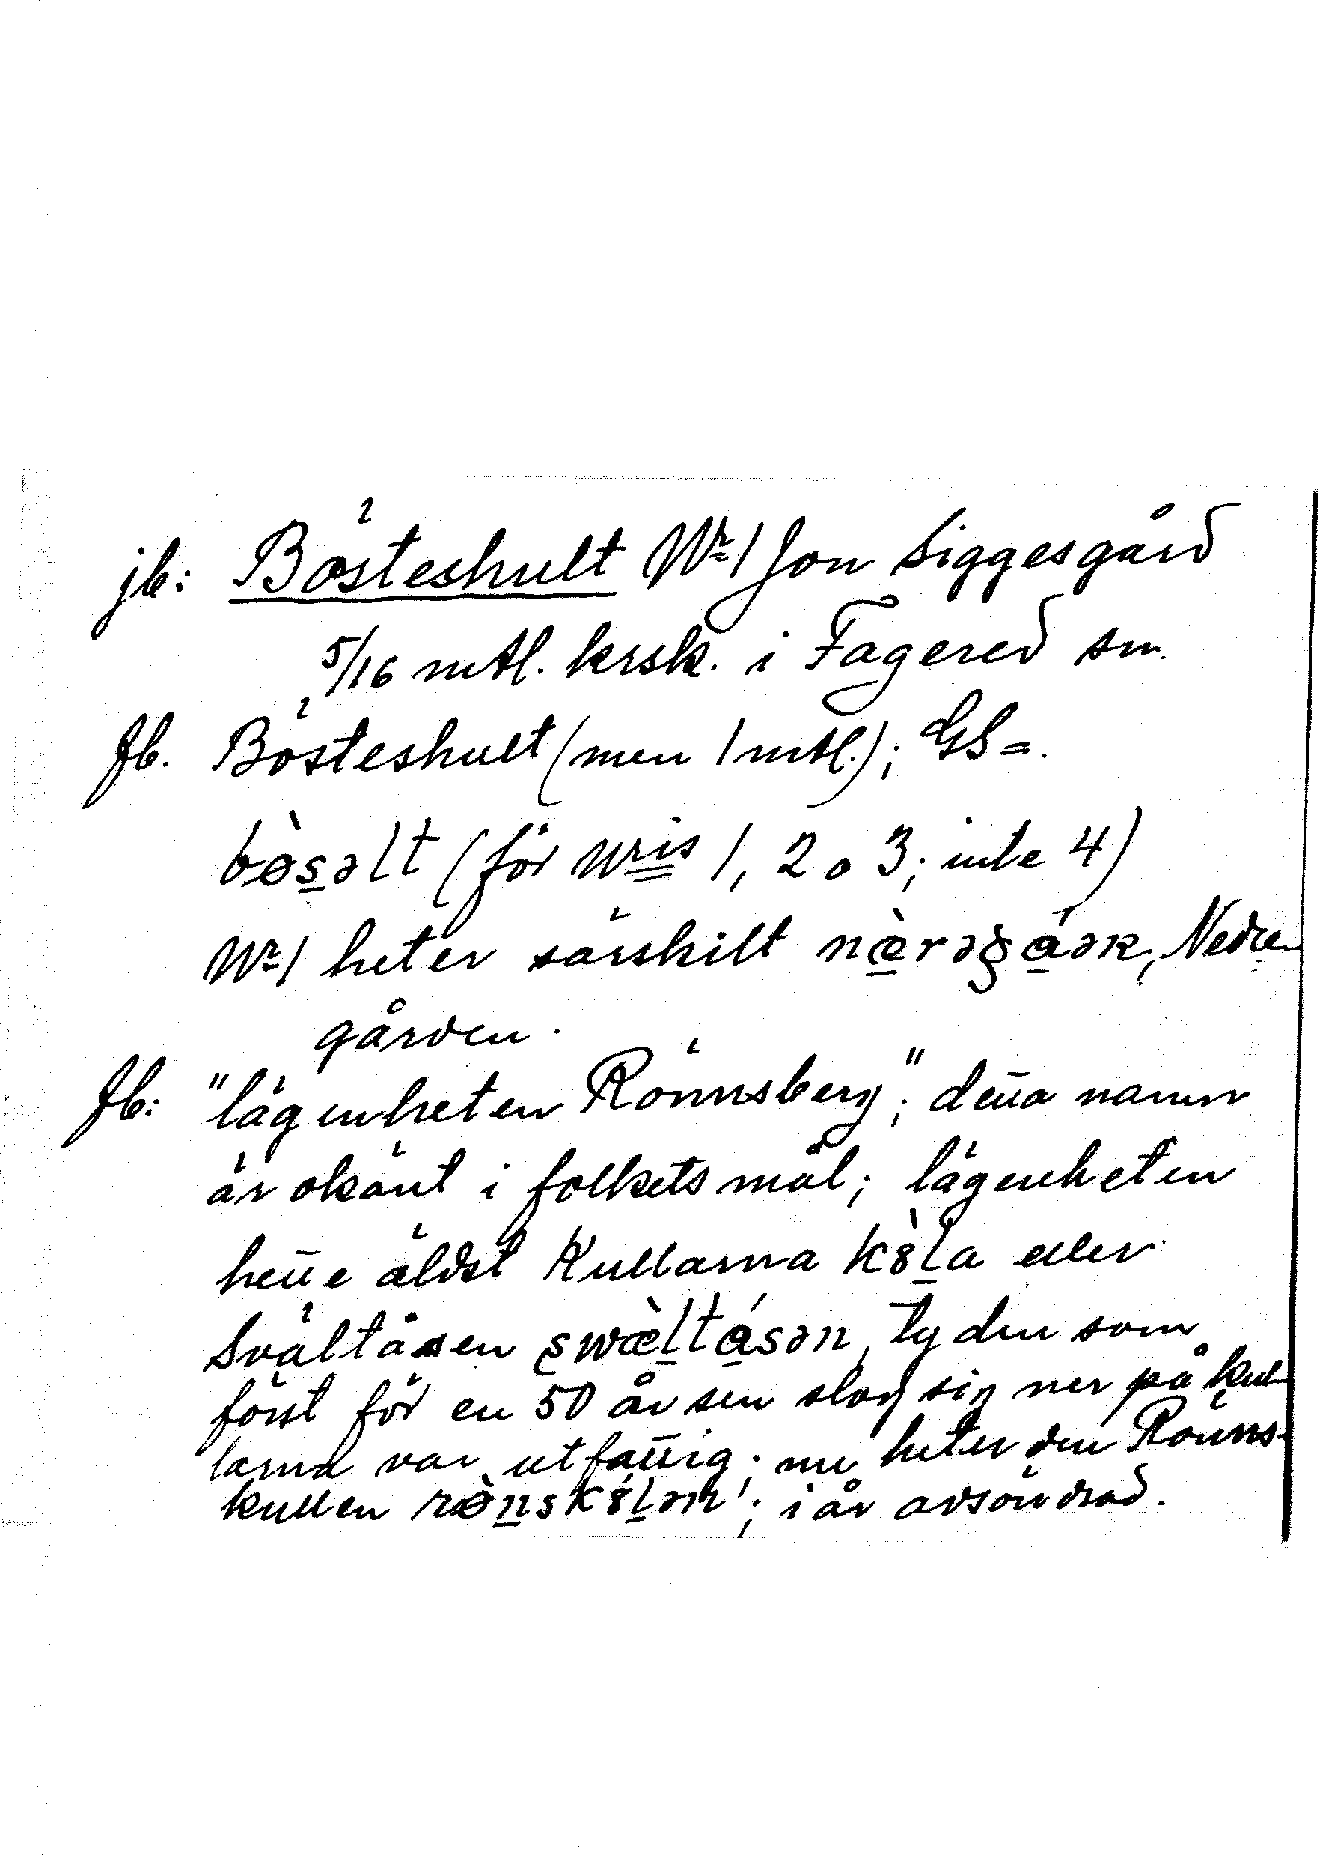 jb: Bösteshult Nr 1 Jon Siggesgård
5/16 mtl. krsk. i Fagered sn.
fb. Bösteshult (men 1 mtl.); GS =.
bø̀səlt (för Nris 1, 2 o 3; inte 4)
Nr 1 heter särskilt næ̀rəgáək, Nedre
gården.
fb: "lägenheten Rönnsberg"; detta namn
är okänt i folkets mål; lägenheten
hette äldst Kullarna k8̀la eller
Svältåsen swæ̀ltásən, ty den som
först för en 50 år sen slog sig ner på kul-
larna var utfattig; nu heter den Rönns-
kullen rø̀nsk8́lən; i år avsöndrad.